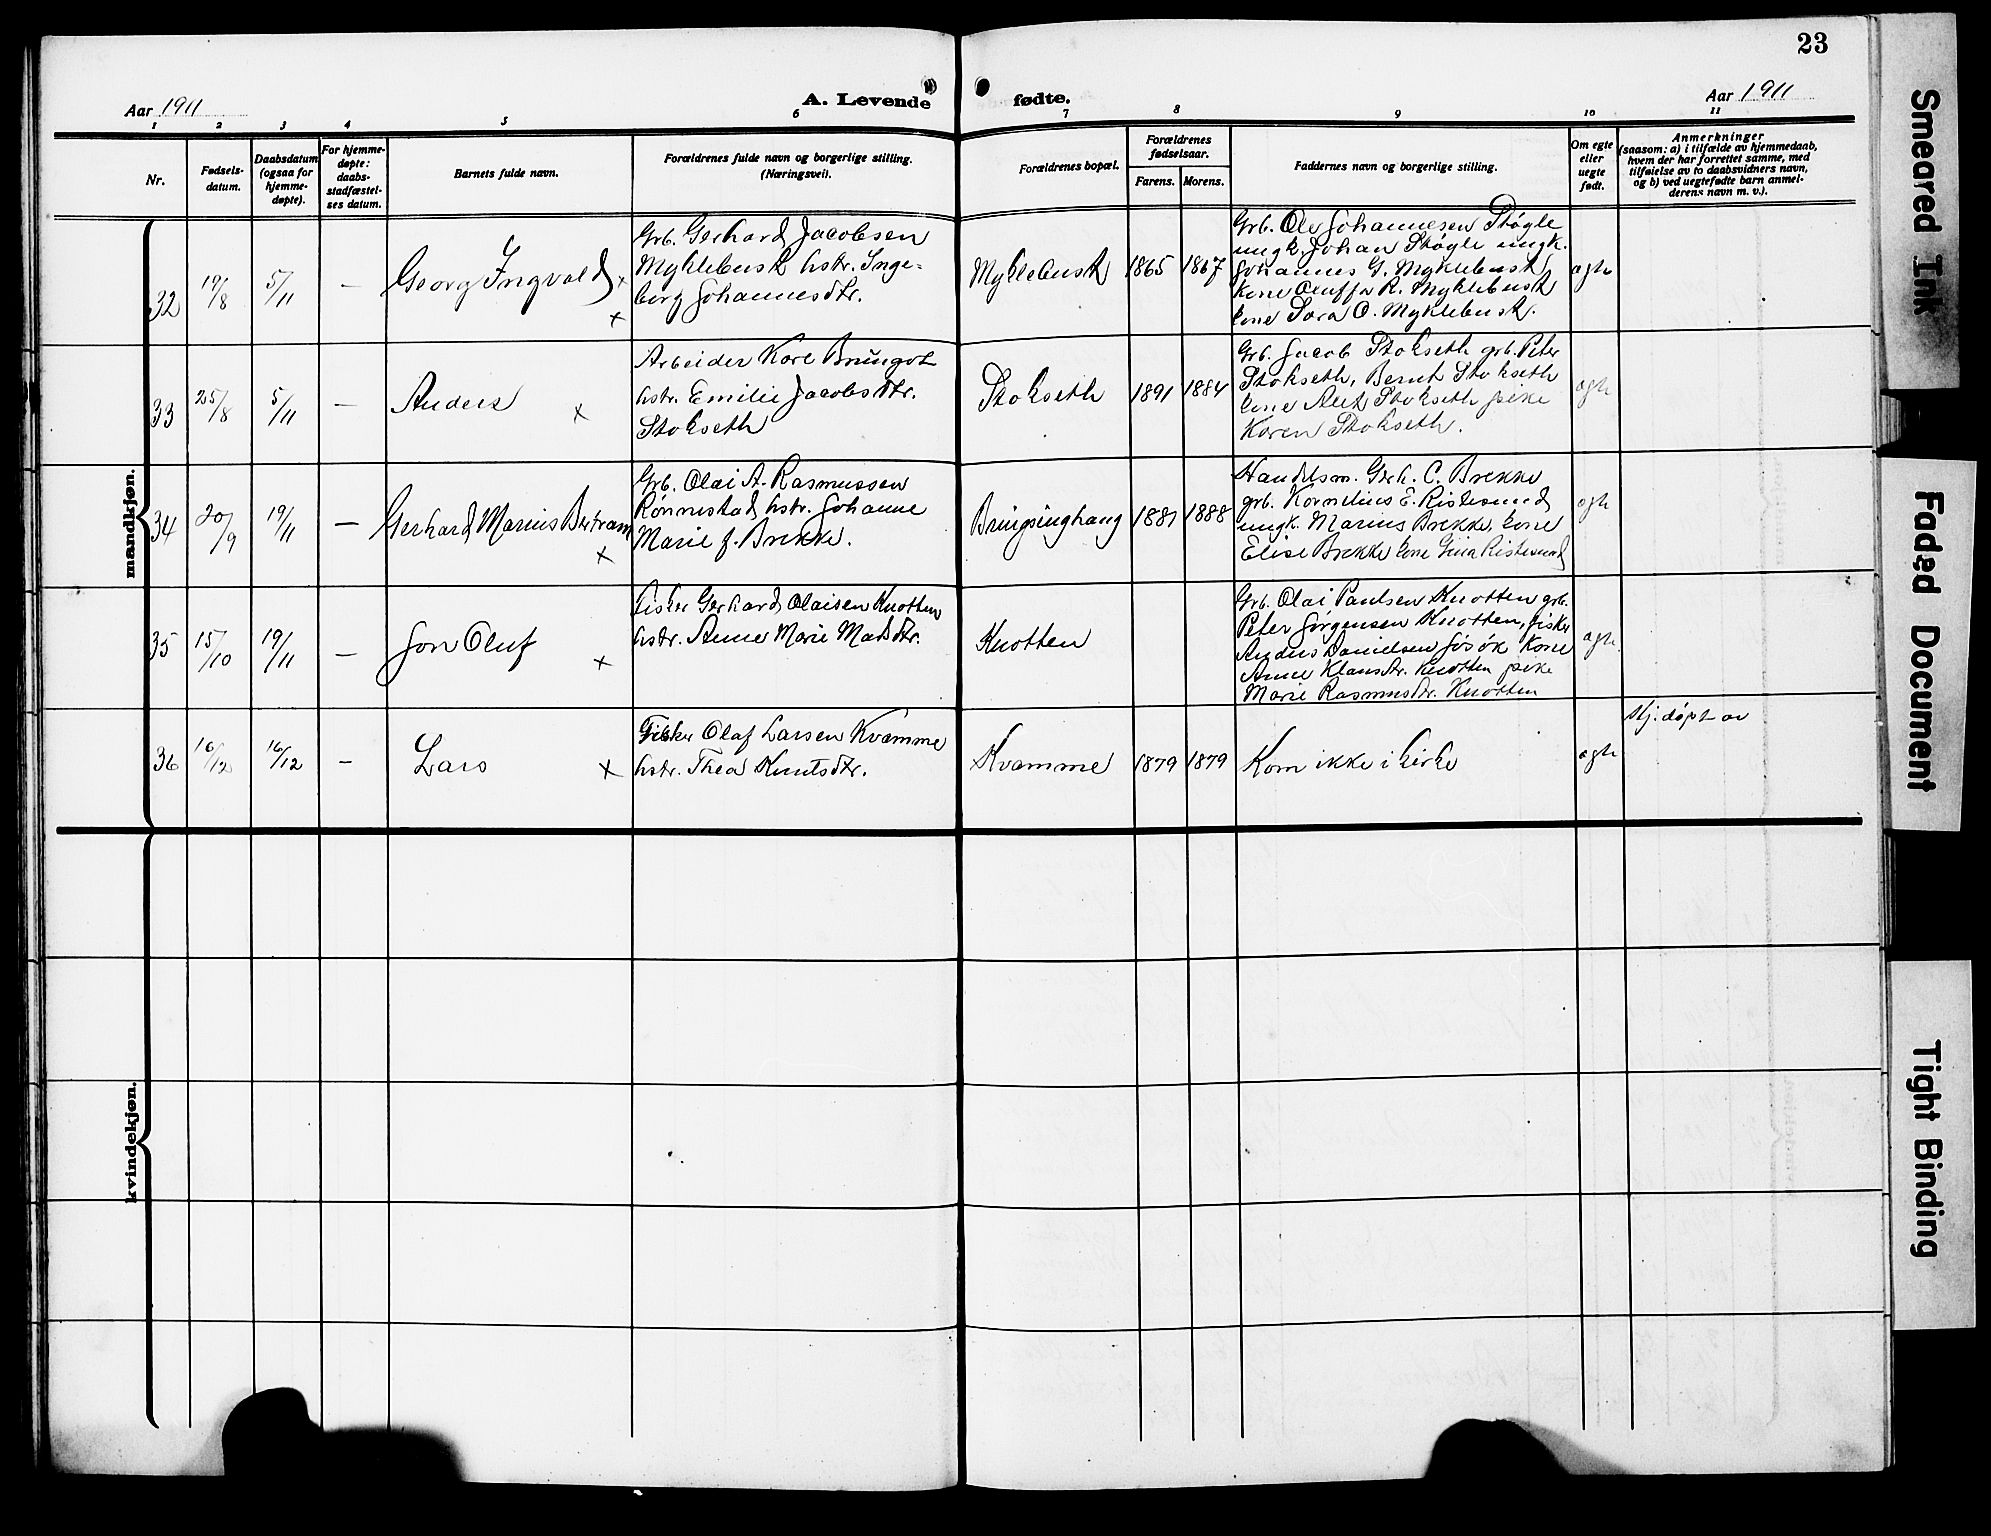 23
Aar 1911
A. Levende fødte.
Aar 1911
1 2 3 4 5 6 7 8 9 10 11
Nr.
Fødsels-
datum.
Daabsdatum
(ogsaa for
hjemme-
døpte).
For hjemme-
døpte:
daabs-
stadfæstel-
ses datum.
Barnets fulde navn.
Forældrenes fulde navn og borgerlige stilling.
(Næringsvei).
Forældrenes bopæl.
Forældrenes
fødselsaar.
Farens. Morens.
Faddernes navn og borgerlige stilling.
Om egte
eller
uegte
født.
Anmerkninger
(saasom: a) i tilfælde av hjemmedaab,
hvem der har forrettet samme, med
tilføielse av to daabsvidners navn,
og b) ved uegtefødte barn anmel-
derens navn m. v.).
mandkjøn.
32 19/8 5/11 — Georg Ingvald x
x
Grb. Gerhard Jacobsen
Myklebust hstr. Inge-
borg Johannesdtr.
Myklebust 1865 1867
Grb. Ole Johannesen Støyle
ungk. Johan Støyle ungk.
Johannes G. Myklebust
kone Oluffa R. Myklebust
kone Sara O. Myklebust.
egte
33 25/8 5/11 — Anders x
Arbeider Kare Brungot
hstr. Emilie Jacobsdtr.
Stokseth
Stokseth 1891 1884
Grb. Jacob Stokseth grb. Peter
Stokseth, Bernt Stokseth
kone Alet Stokseth pike
Karen Stokseth.
egte
34 20/9 19/11 — Gerhard Marius Bertram
x
Grb. Olai A. Rasmussen
Rønnestad hstr. Johanne
Marie f. Brekke.
Bringsinghaug 1881 1888
Handelsm. Gerh. C. Brekke
grb. Kornelius E. Ristesund
ungk. Marius Brekke, kone
Elise Brekke kone Ristesund
egte
35 15/10 19/11 — Jon Oluf x
Fisker Gerhard Olaisen Knotten
hstr. Anne Marie Matsdtr.
Knotten
Grb. Olai Paulsen Knotten grb.
Peter Jørgensen Knotten, fisker
Anders Danielsen Jøsøk Kone
Anne Klausdtr. Knotten pike
Marie Rasmusdtr. Knotten
egte
36 16/12 16/12 — Lars x
Fisker Olaf Larsen Kvamme
hstr. Thea Knutsdtr.
Kvamme 1879 1879
Kom ikke i kirke
egte
Hj. døpt av
kvindekjøn.
Smeared Ink
Faded Document
Tight Binding